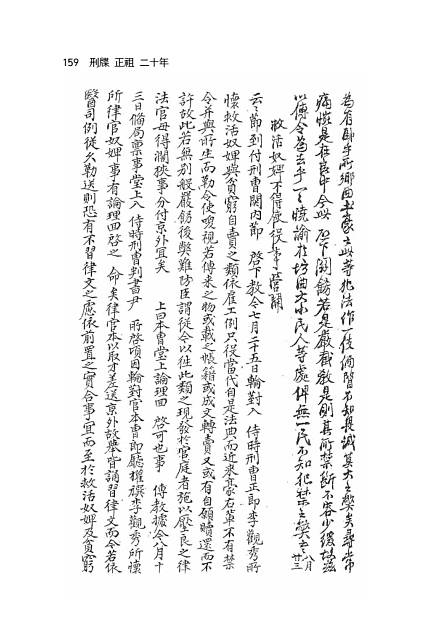 159 刑牒 正祖 二十年
爲有卽乎所鄕曲土豪之此等犯法作一後 習不知是誠莫大之弊矣尋常
痛惋是在良中今此 啓下關飭若是嚴截敎是則其所禁斷不容少緩故茲
以傳令爲去乎一一曉諭於坊曲大小民人等處俾無一民不知犯禁之弊 八月廿三
救活奴婢不得 役事營關
云云節到付刑曹關內節 啓下敎今七月二十五日輪對入 侍時刑曹正郎李觀秀所
懷救活奴婢與貧窮自賣之類依雇工例只役當代自是法典而近來豪右輩不有禁
令幷與所生而勒令使喚視若傳來之物或載之帳籍或成文轉賣又或有自願贖還而不
許故此若無別般嚴飭後弊難防臣謂從今以往此類之現發於官庭者施以壓良之律
法官毋得闊狹事分付京外宜矣 上曰本曹堂上論理回 啓可也事 傳敎據今八月十
三日備局稟事堂上入 侍時刑曹判書尹 所啓頃因輪對官本曹郎廳權襈李觀秀所懷
所律官奴婢事有論理回啓之 命矣律官本以取才差送京外故擧皆誦習律文而今若依
醫司例從久勤送則恐有不習律文之慮依前置之實合事宜而至於救活奴婢及貧窮